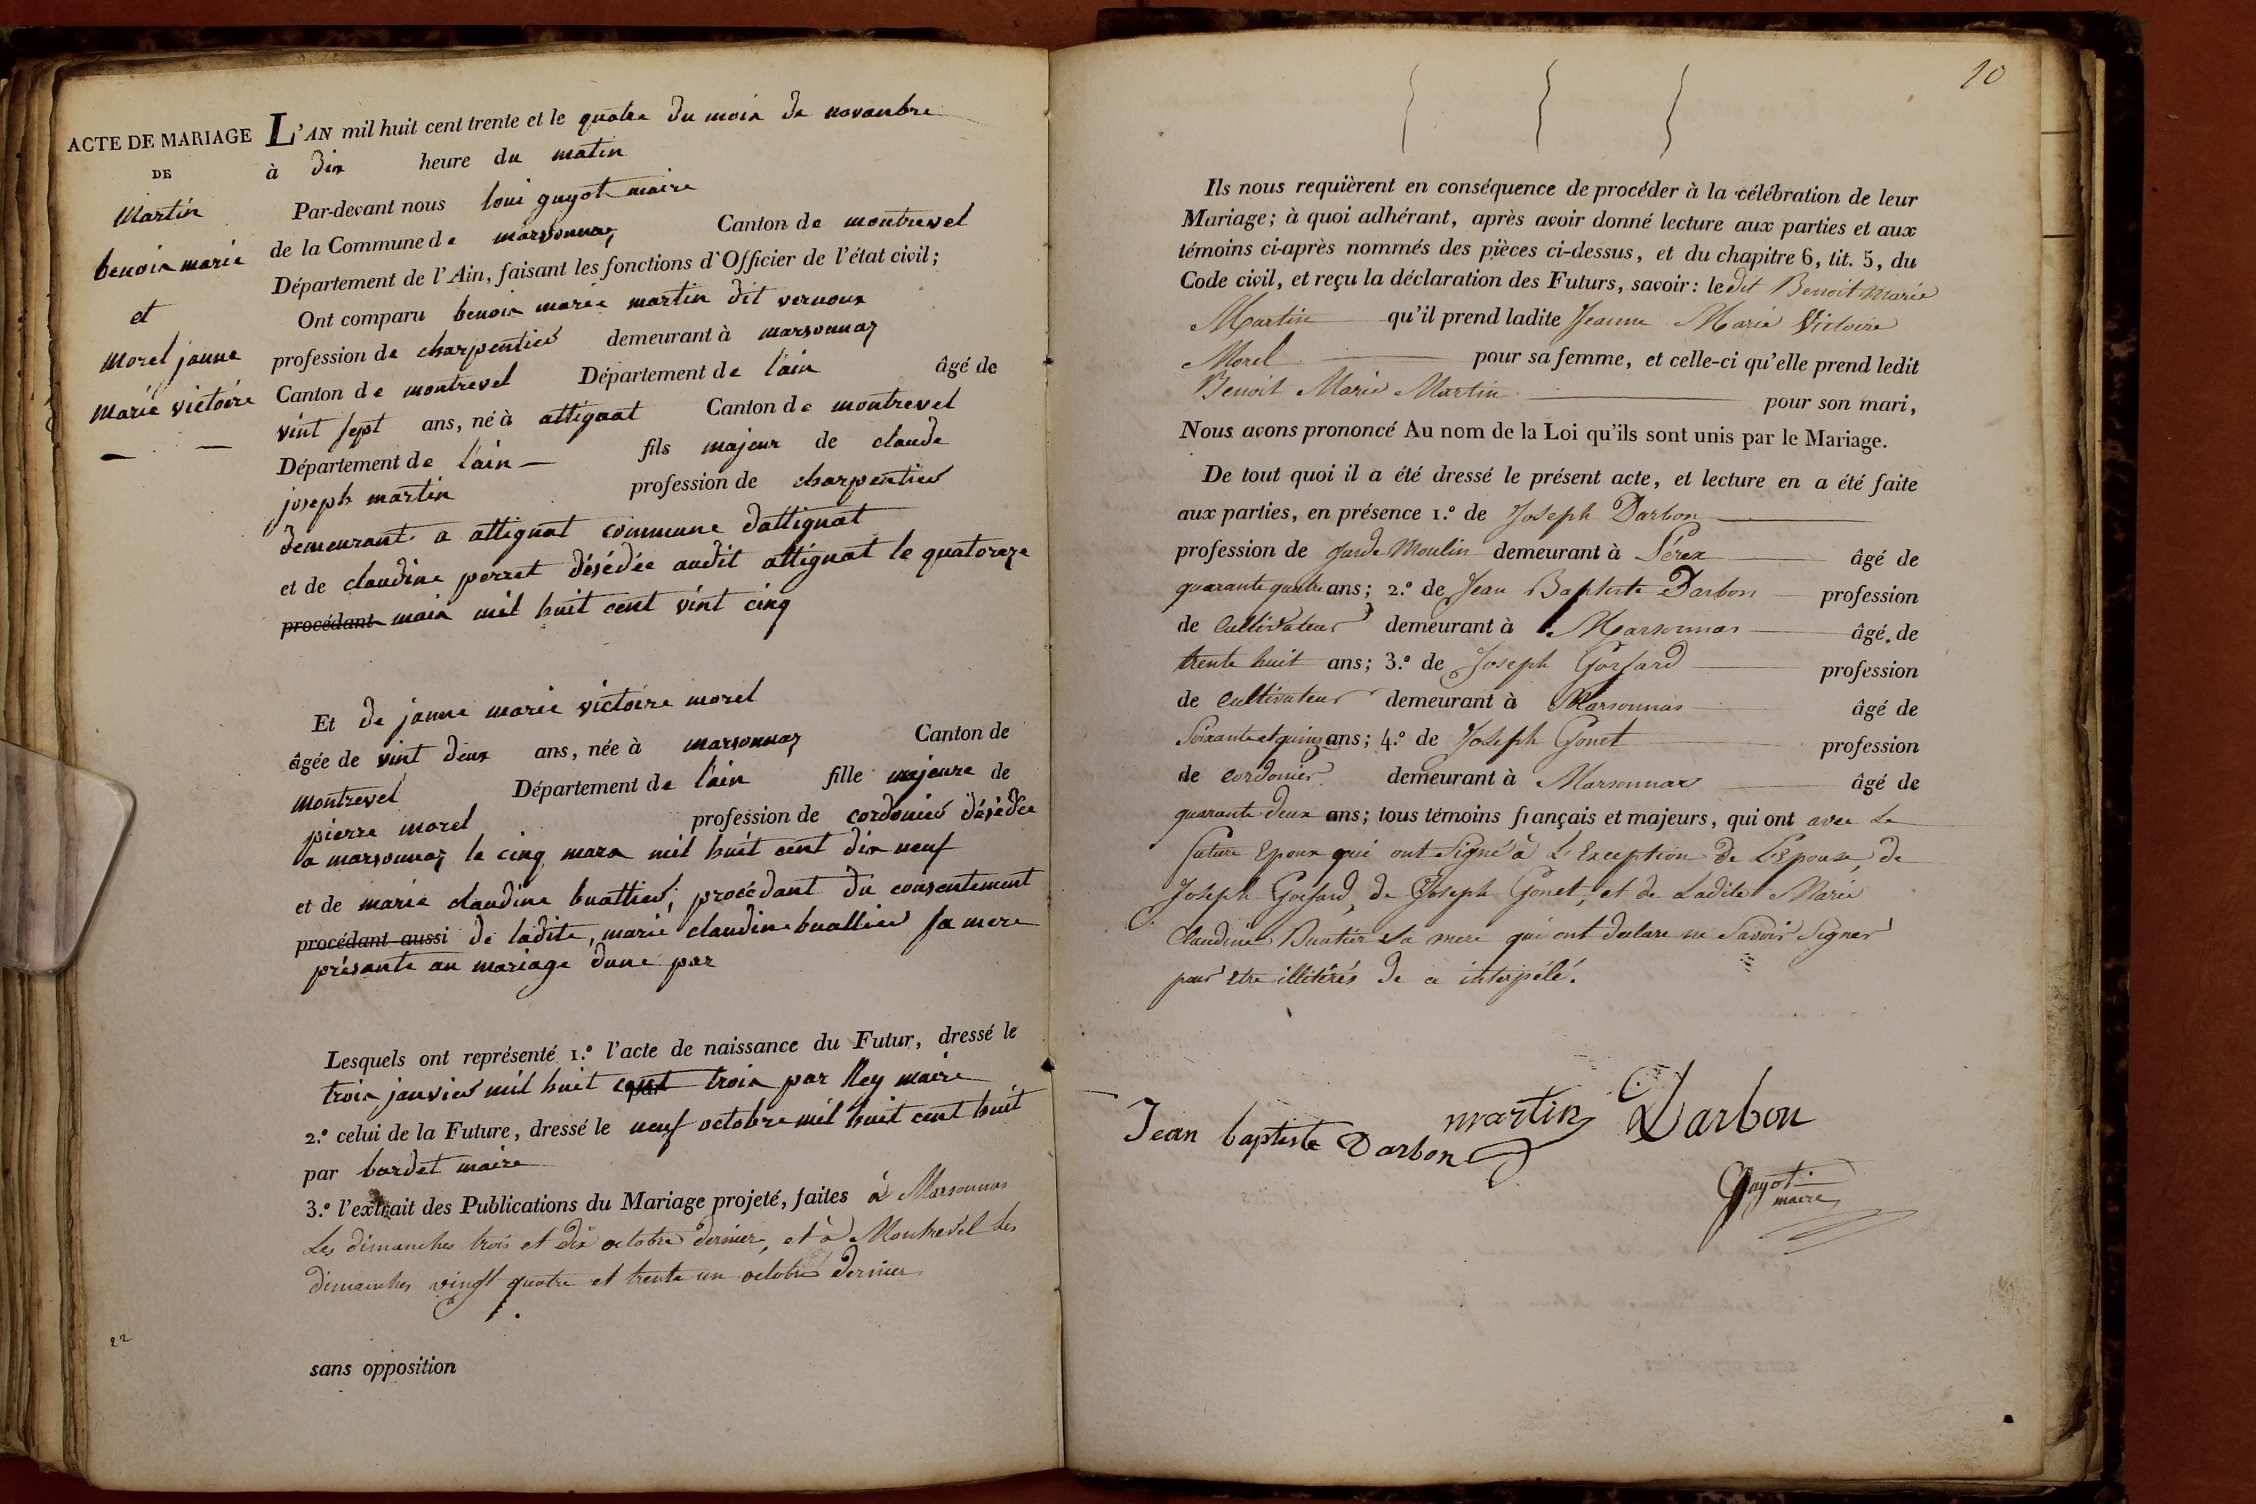 ACTE DE MARIAGE
DE
Martin
benoix marie
et
Morel janne
marie victoire
L'AN mil huit cent trente et le quatre du moix de novambre
à dix heure du matin
Par-devant nous loui guyot maire
de la Commune de marsonnaz Canton de montrevel
Département de l'Ain, faisant les fonctions d'Officier de l'état civil;
Ont comparu benoix marie martin dit vernoux
profession de charpentier demeurant à marsonnaz
Canton de montrevel Département de l'ain âgé de
vint sept ans, né à attignat Canton de montrevel
Département de l'ain — fils majeur de claude
joseph martin profession de charpentier
demeurant a attignat commune dattignat
et de claudine perret désédée audit attignat le quatorze
procédant maix mil huit cent vint cinq
Et de janne marie victoire morel
âgée de vint deux ans, née à marsonnaz Canton de
montrevel Département de l'ain fille majeure de
pierre morel profession de cordonier désédée
a marsonnaz le cinq marx mil huit cent dix neuf
et de marie claudine buattier, procédant du consentement
procédant aussi de ladite, marie claudine buattier sa mere
présante au mariage dune par
Lesquels ont représenté 1.º l'acte de naissance du Futur, dressé le
troix janvier mil huit cent troix par Rey maire
2.º celui de la Future, dressé le neuf octobre mil huit cent huit
par bardet maire
3.º l'extrait des Publications du Mariage projeté, faites à Marsonnas
Les dimanches trois et dix octobre dernier, et à Montrevel les
dimanches vingt quatre et trente un octobre dernier
22
sans opposition
10
Ils nous requièrent en conséquence de procéder à la célébration de leur
Mariage; à quoi adhérant, après avoir donné lecture aux parties et aux
témoins ci-après nommés des pièces ci-dessus, et du chapitre 6, tit. 5, du
Code civil, et reçu la déclaration des Futurs, savoir: ledit Benoit Marie
Martin qu'il prend ladite Jeanne Marie Victoire
Morel pour sa femme, et celle-ci qu'elle prend ledit
Benoit Marie Martin pour son mari,
Nous avons prononcé Au nom de la Loi qu'ils sont unis par le Mariage.
De tout quoi il a été dressé le présent acte, et lecture en a été faite
aux parties, en présence 1.º de Joseph Darbon
profession de garde Moulin demeurant à Pérex âgé de
quarante quatre ans; 2.º de Jean Baptiste Darbon profession
de Cultivateur demeurant à Marsonnas âgé de
trente huit ans; 3.º de Joseph Goyfard profession
de Cultivateur demeurant à Marsonnas âgé de
Soixante et quinze ans; 4.º de Joseph Gonet profession
de cordonier demeurant à Marsonnas âgé de
quarante deux ans; tous témoins français et majeurs, qui ont avec Le
future Epoux qui ont Signé à L'Exception de L'Epouse, de
Joseph Goyfard, de Joseph Gonet, et de Ladite Marie
Claudine Buatier sa mere qui ont declare ne Savoir Signer
pour etre illitérés de ce interpélé.
Jean baptiste Darbon
martin
Darbon
Guyot
maire